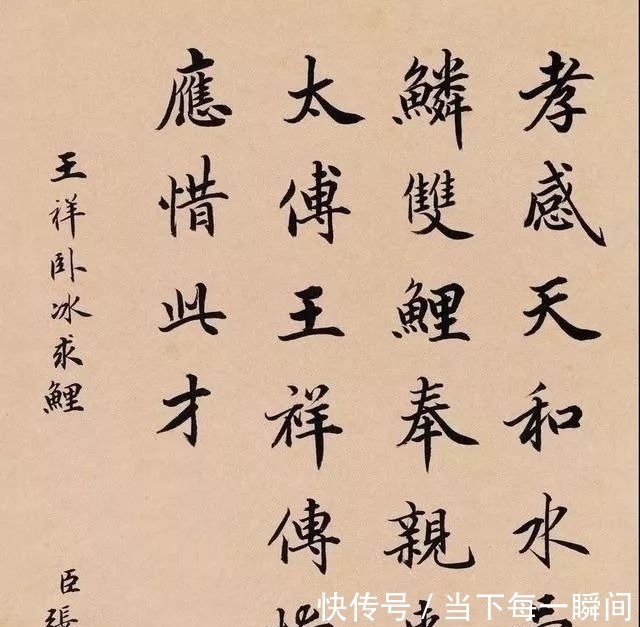 孝感天和水
鱗雙鯉奉親
太傅王祥傳
應惜此才
王祥卧冰求鯉
臣張
快传号 / 当下每一瞬间